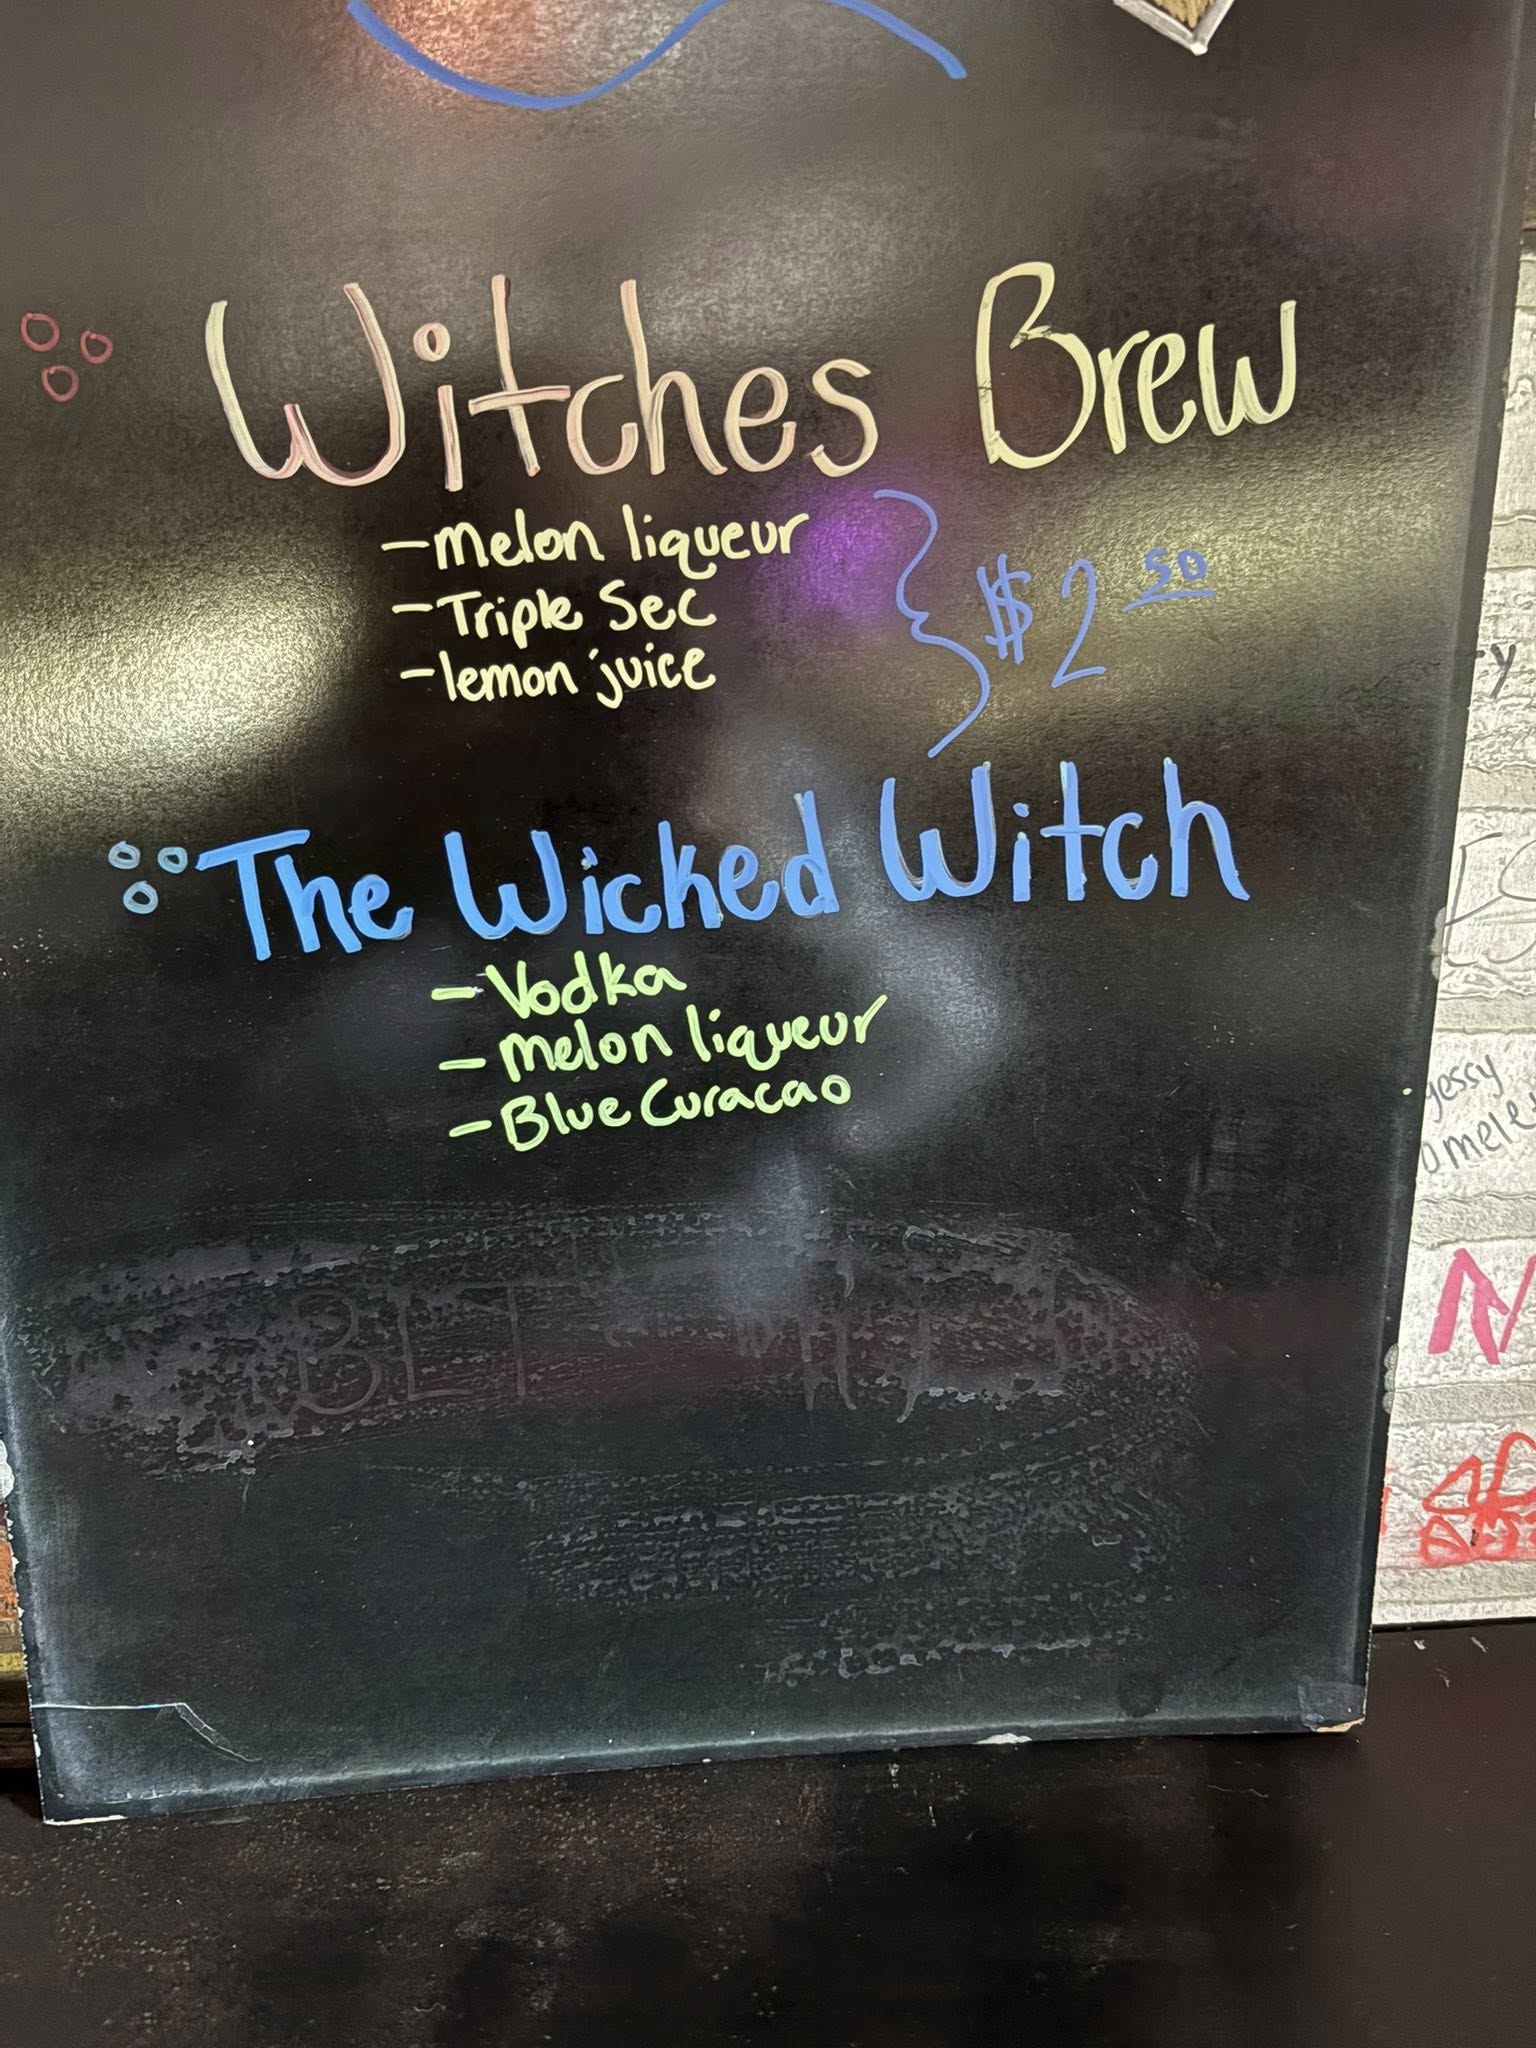 Witches Brew
- melon liqueur
- Triple Sec
- lemon juice
$2 50
The Wicked Witch
- Vodka
- melon liqueur
- Blue Curacao
BLT